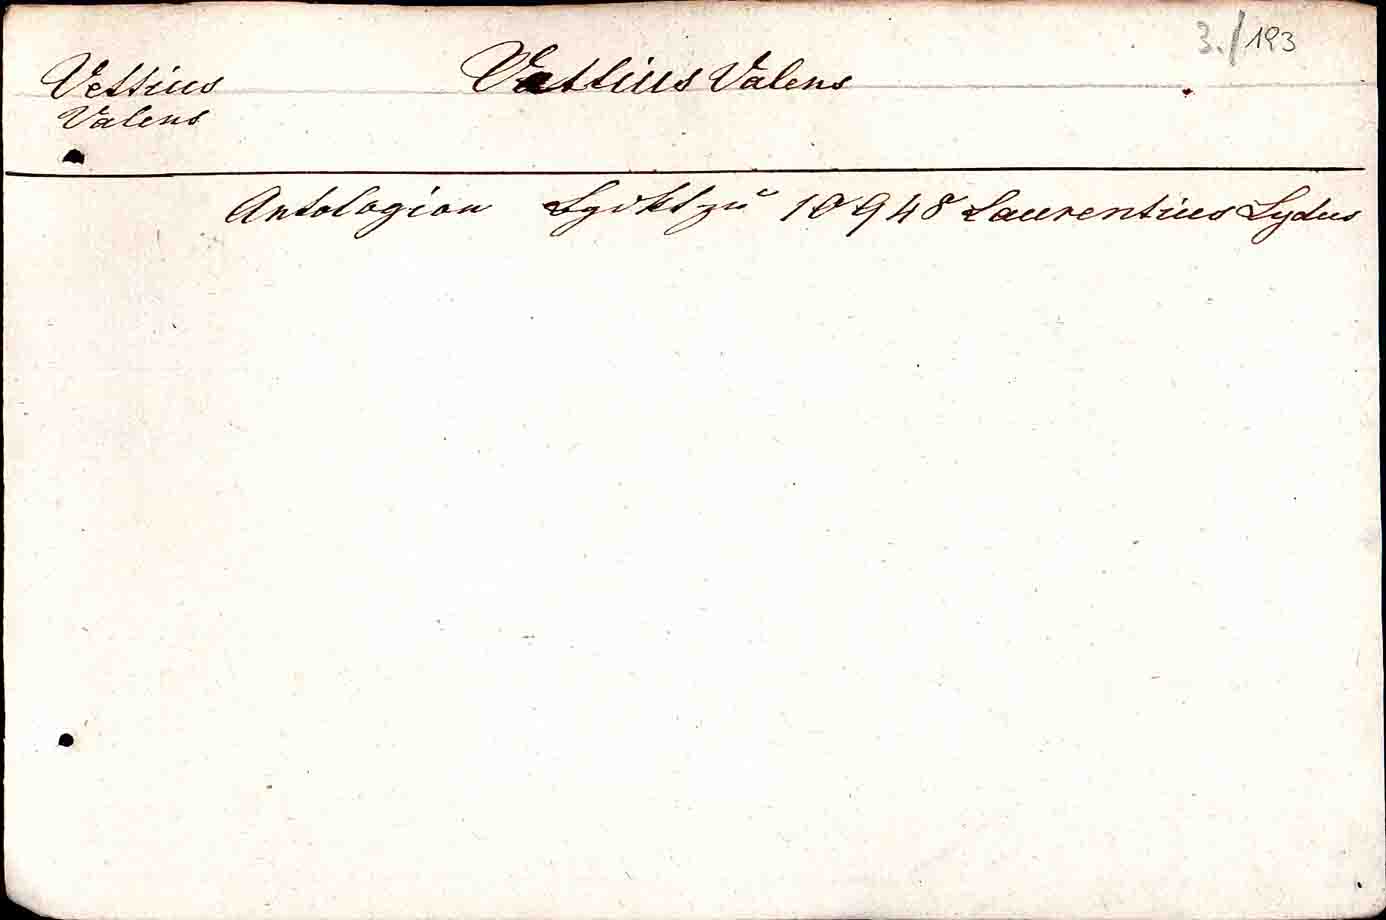 3./193
Vettius Vettius Valens
Valens
Antologion 10948 Laurentius Lydus